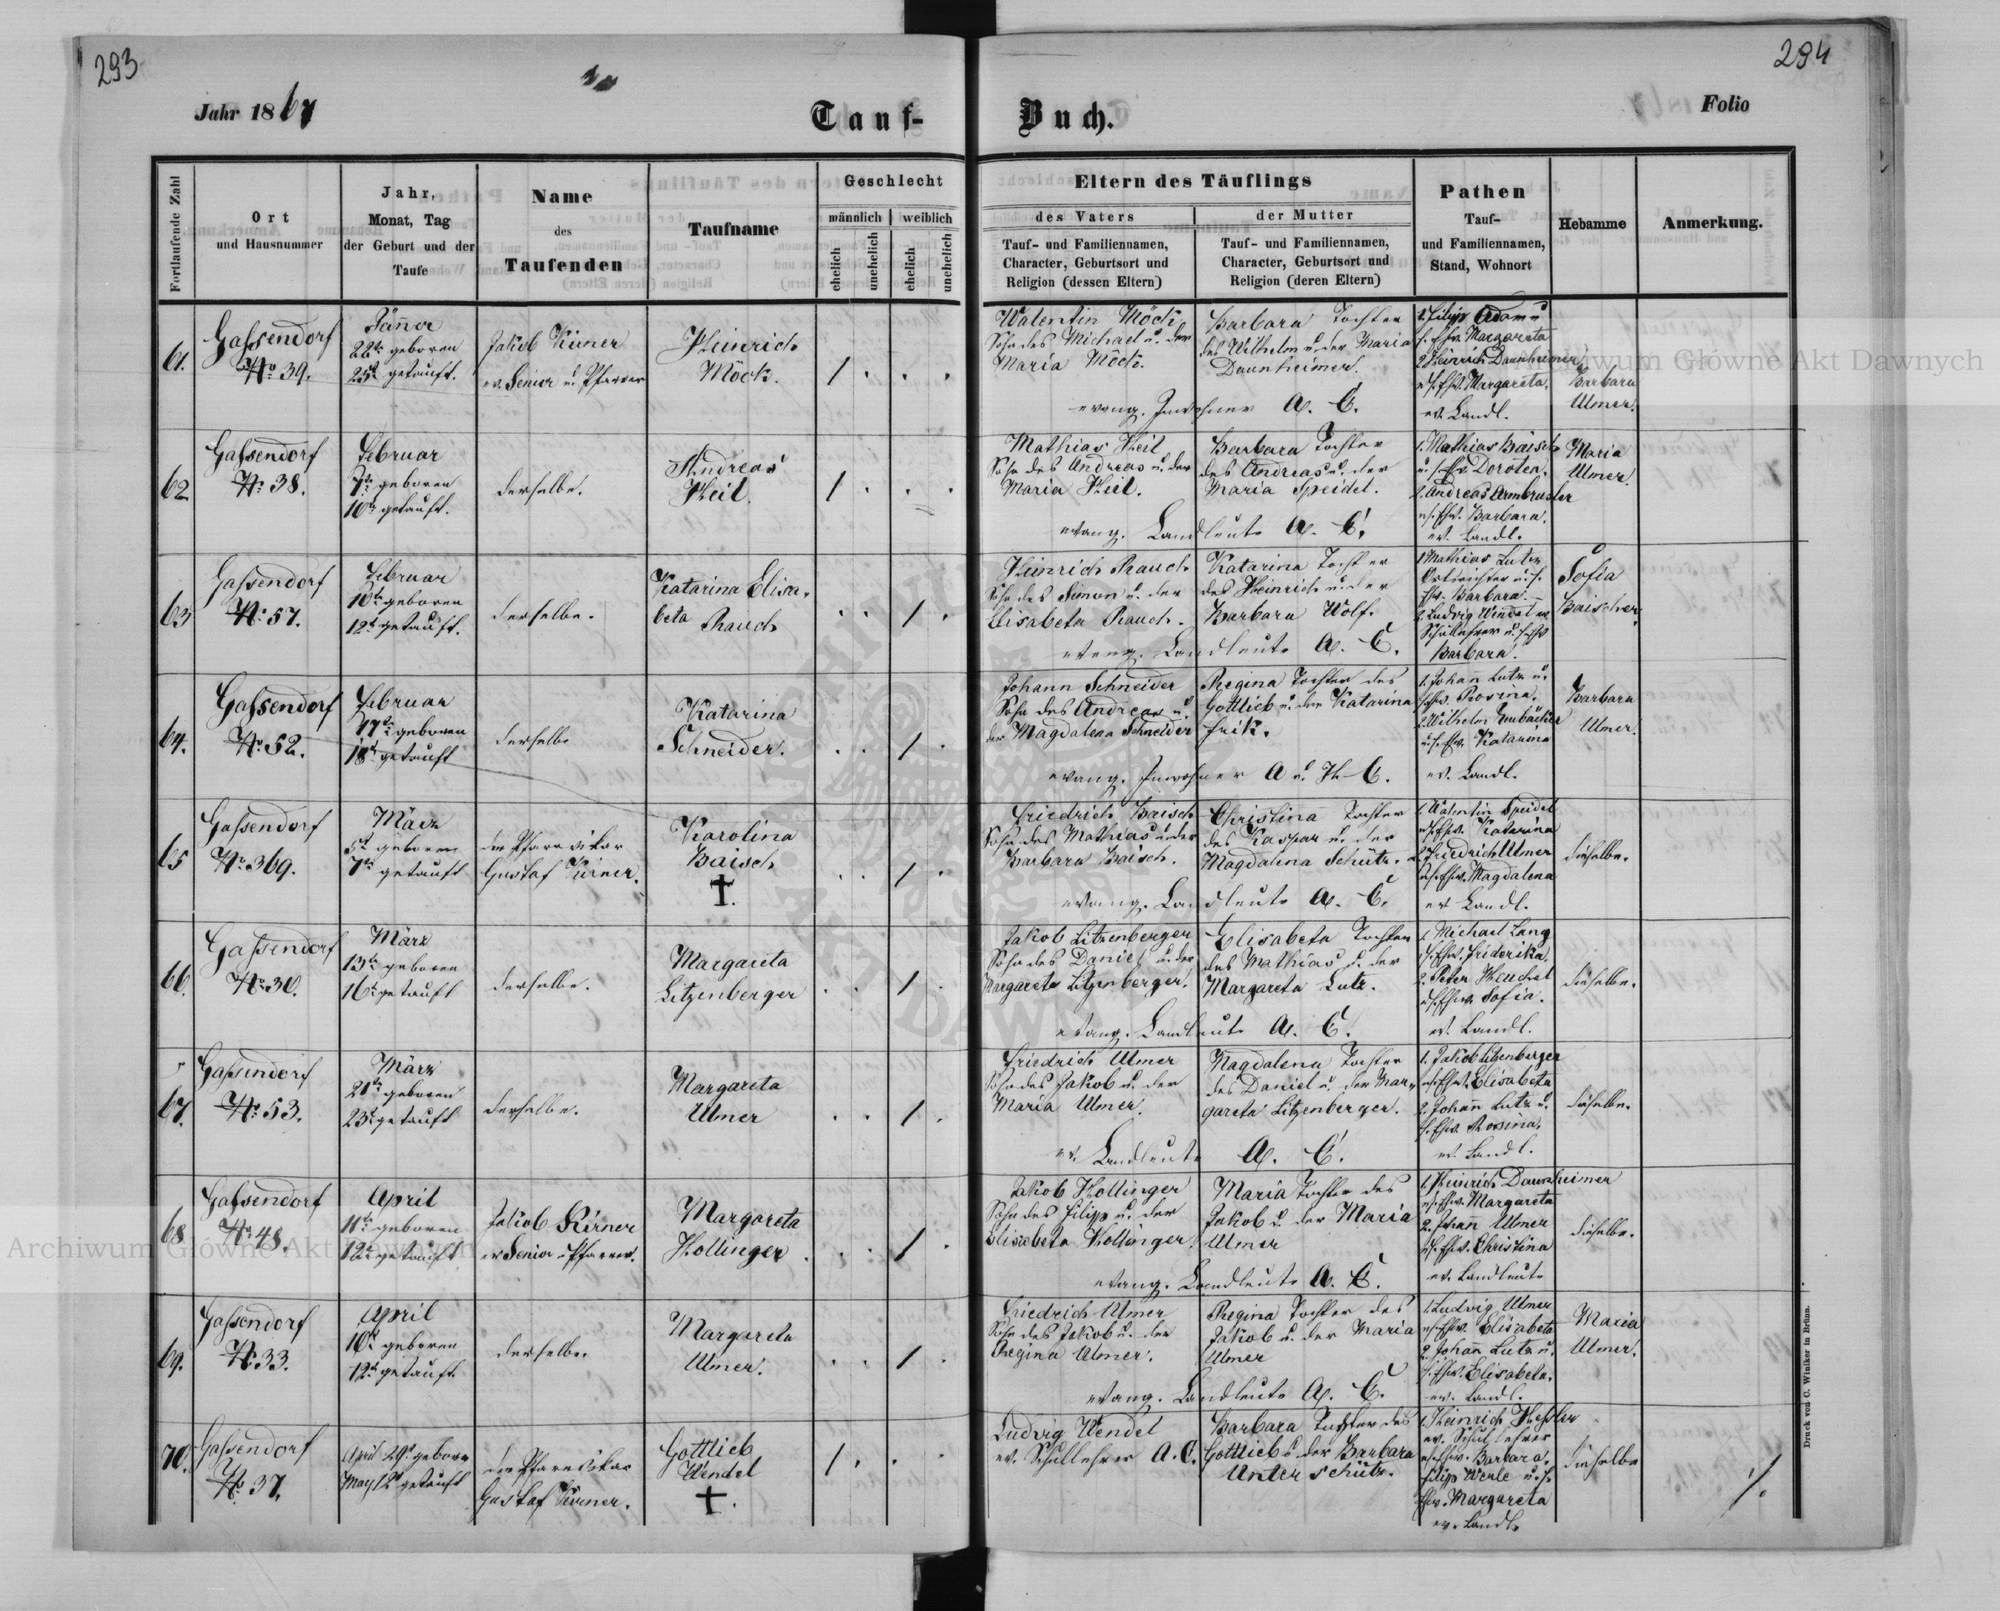 293
294
Jahr 1867
Tauf-
Buch.
Folio
Fortlaufende Zahl
Ort
und Hausnummer
Jahr,
Monat, Tag
der Geburt und der
Taufe
Name
des
Taufenden
Taufname
Geschlecht
männlich
weiblich
ehelich
unehelich
ehelich
unehelich
Eltern des Täuflings
des Vaters
Tauf- und Familiennamen,
Character, Geburtsort und
Religion (dessen Eltern)
der Mutter
Tauf- und Familiennamen,
Character, Geburtsort und
Religion (deren Eltern)
Pathen
Tauf-
und Familiennamen,
Stand, Wohnort
Hebamme
Anmerkung.
61.
Gassendorf
No 39.
Jänner
22te geboren
25t getauft.
Jakob Kirner
ev. Senior u. Pfarrer
Heinrich
Möck.
Valentin Möck
Sohn des Michael u. der
Maria Möck.
Barbara Tochter
des Wilhelm u. der Maria
Daunheimer.
evang. Inwohner A. C.
1. Filipp Adam u
s. Ehw. Margareta
2. Heinrich Daunheimer
u s. Ehw. Margareta.
ev. Landl.
Barbara
Ulmer.
62
Gassendorf
No 38.
Februar
7te geboren
10te getauft.
derselbe.
Andreas
Heil.
Mathias Heil
Sohn des Andreas u. der
Maria Heil.
Barbara Tochter
des Andreas u. der
Maria Speidel.
evang. Landleute A. C.
1. Mathias Baisch
u. s. Ehw Dorotea.
2. Andreas Armbruster
u s. Ehw. Barbara.
ev. Landl.
Maria
Ulmer.
63
Gassendorf
No 57.
Februar
10te geboren
12t getauft.
derselbe.
Katarina Elisa-
beta Rauch
Heinrich Rauch
Sohn des Simon u. der
Elisabeta Rauch.
Katarina Tochter
des Heinrich u. der
Barbara Wolf.
evang. Landleute A. C.
1. Mathias Lutz
Ortsrichter u. s.
Ehw. Barbara.
2. Ludwig Wendel ev.
Schullehrer u. s. Ehw
Barbara.
Sofia
Baischer.
64.
Gassendorf
No 52.
Februar
17te geboren
18t getauft
derselbe
Katarina
Schneider.
Johann Schneider
Sohn des Andreas u.
der Magdalena Schneider
Regina Tochter des
Gottlieb u. der Katarina
Fritz.
evang. Inwohner A u. H. C.
1. Johan Lutz u.
s. Ehw. Rosina.
2. Wilhelm
u. s. Ehw. Katarina
ev. Landl.
Barbara
Ulmer.
65
Gassendorf
No 369.
März
5t geboren
7te getauft
der Pfarrvikar
Gustaf Kirner.
Karolina
Baisch
†.
Friedrich Baisch
Sohn des Mathias u. der
Barbara Baisch.
Christina Tochter
des Kaspar u. der
Magdalena Schütz.
evang. Landleute A. C.
1. Valentin Speidel
u s. Ehw. Katarina
2. Friedrich Ulmer
u s. Ehw. Magdalena
ev Landl.
dieselbe.
66.
Gassendorf
No 30.
März
13te geboren
16t getauft
derselbe.
Margareta
Litzenberger
Jakob Litzenberger
Sohn des Daniel u. der
Margareta Litzenberger.
Elisabeta Tochter
des Mathias u. der
Margareta Lutz.
evang. Landleute A. C.
1. Michael Lang
u s. Ehw. Friderika.
2. Peter Heuchel
u s. Ehw. Sofia.
ev. Landl.
dieselbe.
67.
Gassendorf
No 53.
März
21te geboren
23t getauft
derselbe.
Margareta
Ulmer
Friedrich Ulmer
Sohn des Jakob u. der
Maria Ulmer.
Magdalena Tochter
des Daniel u. der Mar-
gareta Litzenberger.
ev. Landleute A. C.
1. Jakob Litzenberger
u s. Ehw. Elisabeta
2. Johann Lutz u.
s. Ehw. Rosina.
ev. Landl.
dieselbe.
68
Gassendorf
No 48.
April
11te geboren
12te getauft
Jakob Kirner
ev Senior u Pfarrer.
Margareta
Hollinger.
Jakob Hollinger
Sohn des Filipp u. der
Elisabeta Hollinger.
Maria Tochter des
Jakob u. der Maria
Ulmer
evang. Landleute A. C.
1. Heinrich Daunheimer
u s. Ehw. Margareta
2. Johann Ulmer
u s. Ehw. Christina
ev. Landleute
dieselbe.
69.
Gassendorf
No 33.
April
10t geboren
12t getauft
derselbe.
Margareta
Ulmer.
Friedrich Ulmer
Sohn des Jakob u. der
Regina Ulmer.
Regina Tochter des
Jakob u. der Maria
Ulmer
evang. Landleute A. C.
1. Ludwig Ulmer
u s. Ehw. Elisabeta
2. Johann Lutz u.
s. Ehw. Elisabeta.
ev. Landl.
Maria
Ulmer.
70.
Gassendorf
No 37.
April 29t geboren
May 12t getauft
der Pfarrvikar
Gustaf Kirner.
Gottlieb
Wendel
†.
Ludwig Wendel
ev. Schullehrer A. C.
Barbara Tochter des
Gottlieb u. der Barbara
Unterschütz.
1. Heinrich Hessler
ev. Schullehrer
u s. Ehw. Barbara.
Filipp Werle u. s.
Ehw. Margareta
ev. Landl.
dieselbe
Druck von C. Winiker in Brünn.
Archiwum Główne Akt Dawnych
Archiwum Główne Akt Dawnych